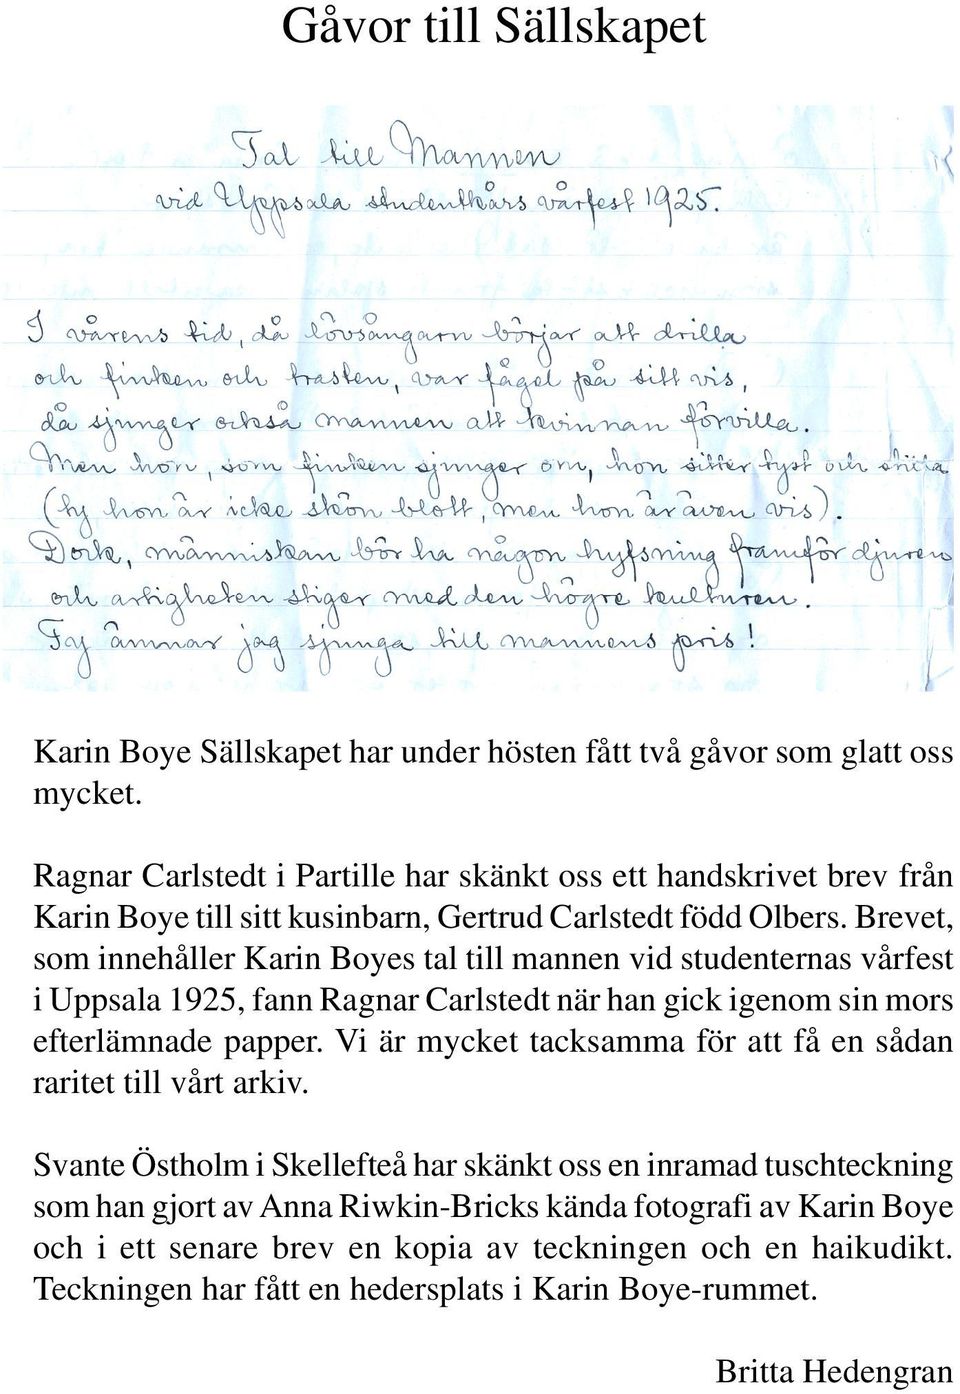 Gåvor till Sällskapet
Tal till Mannen
vid Uppsala studentkårs vårfest 1925.
I vårens tid, då lövsångarn börjar att drilla
och finken och trasten, var fågel på sitt vis,
då sjunger också mannen att kvinnan förvilla.
Men hon, som finken sjunger om, hon sitter tyst och stilla
(ty hon är icke skön blott, men hon är även vis).
Dock, människan bör ha någon hyfsning framför djuren
och artigheten stiger med den högre kulturen.
Ty ämnar jag sjunga till mannens pris!
Karin Boye Sällskapet har under hösten fått två gåvor som glatt oss
mycket.
Ragnar Carlstedt i Partille har skänkt oss ett handskrivet brev från
Karin Boye till sitt kusinbarn, Gertrud Carlstedt född Olbers. Brevet,
som innehåller Karin Boyes tal till mannen vid studenternas vårfest
i Uppsala 1925, fann Ragnar Carlstedt när han gick igenom sin mors
efterlämnade papper. Vi är mycket tacksamma för att få en sådan
raritet till vårt arkiv.
Svante Östholm i Skellefteå har skänkt oss en inramad tuschteckning
som han gjort av Anna Riwkin-Bricks kända fotografi av Karin Boye
och i ett senare brev en kopia av teckningen och en haikudikt.
Teckningen har fått en hedersplats i Karin Boye-rummet.
Britta Hedengran